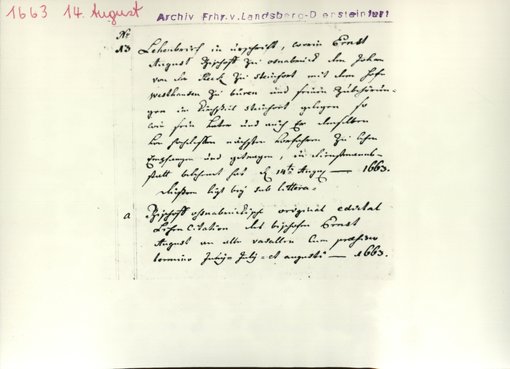 1663 14. August
Archiv Frhr. v. Landsberg-Drensteinfurt
No
13 Lehenbrieff in urschrifft, worin Ernst
August Bischoff zu osnabrück den Johan
von der Reck zu steinfort mit dem hofe
westhausen zu büren und seinen Zubehörun-
gen in Kirchspiel steinfort gelegen so
wie sein Vater und auch Er denselben
von nächste Vorfahren zu lehen
Empfangen und getragen, in dienstmanns-
statt belehnet hat d 14ten Augus — 1663.
ligt bey sub littera.
a Bischoff osnabrückische original edictal
Lehen Citation des bischofen Ernst
August an alle vasallen Cum praefixo
termino Julij et augusti — 1663.